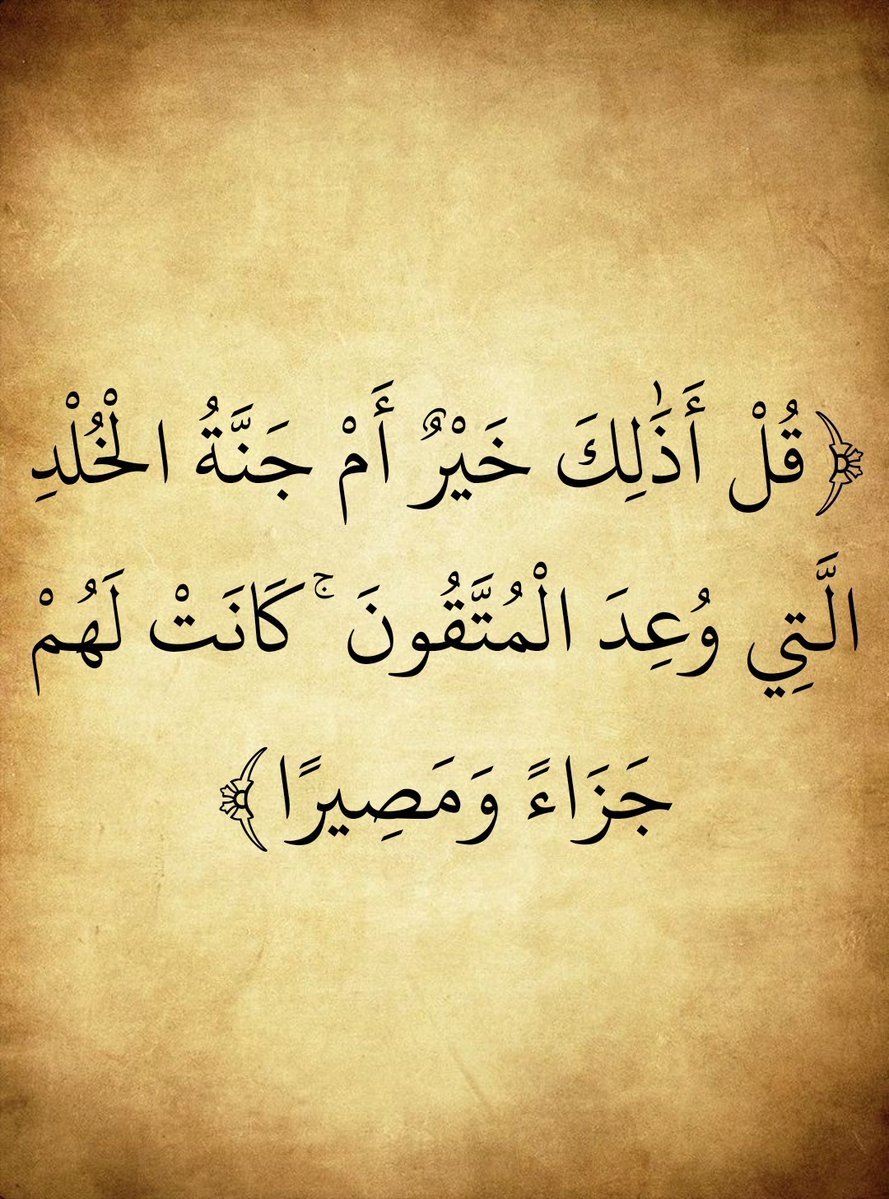 ﴿قُلْ أَذَٰلِكَ خَيْرٌ أَمْ جَنَّةُ الْخُلْدِ
الَّتِي وُعِدَ الْمُتَّقُونَ ۚ كَانَتْ لَهُمْ
جَزَاءً وَمَصِيرًا﴾